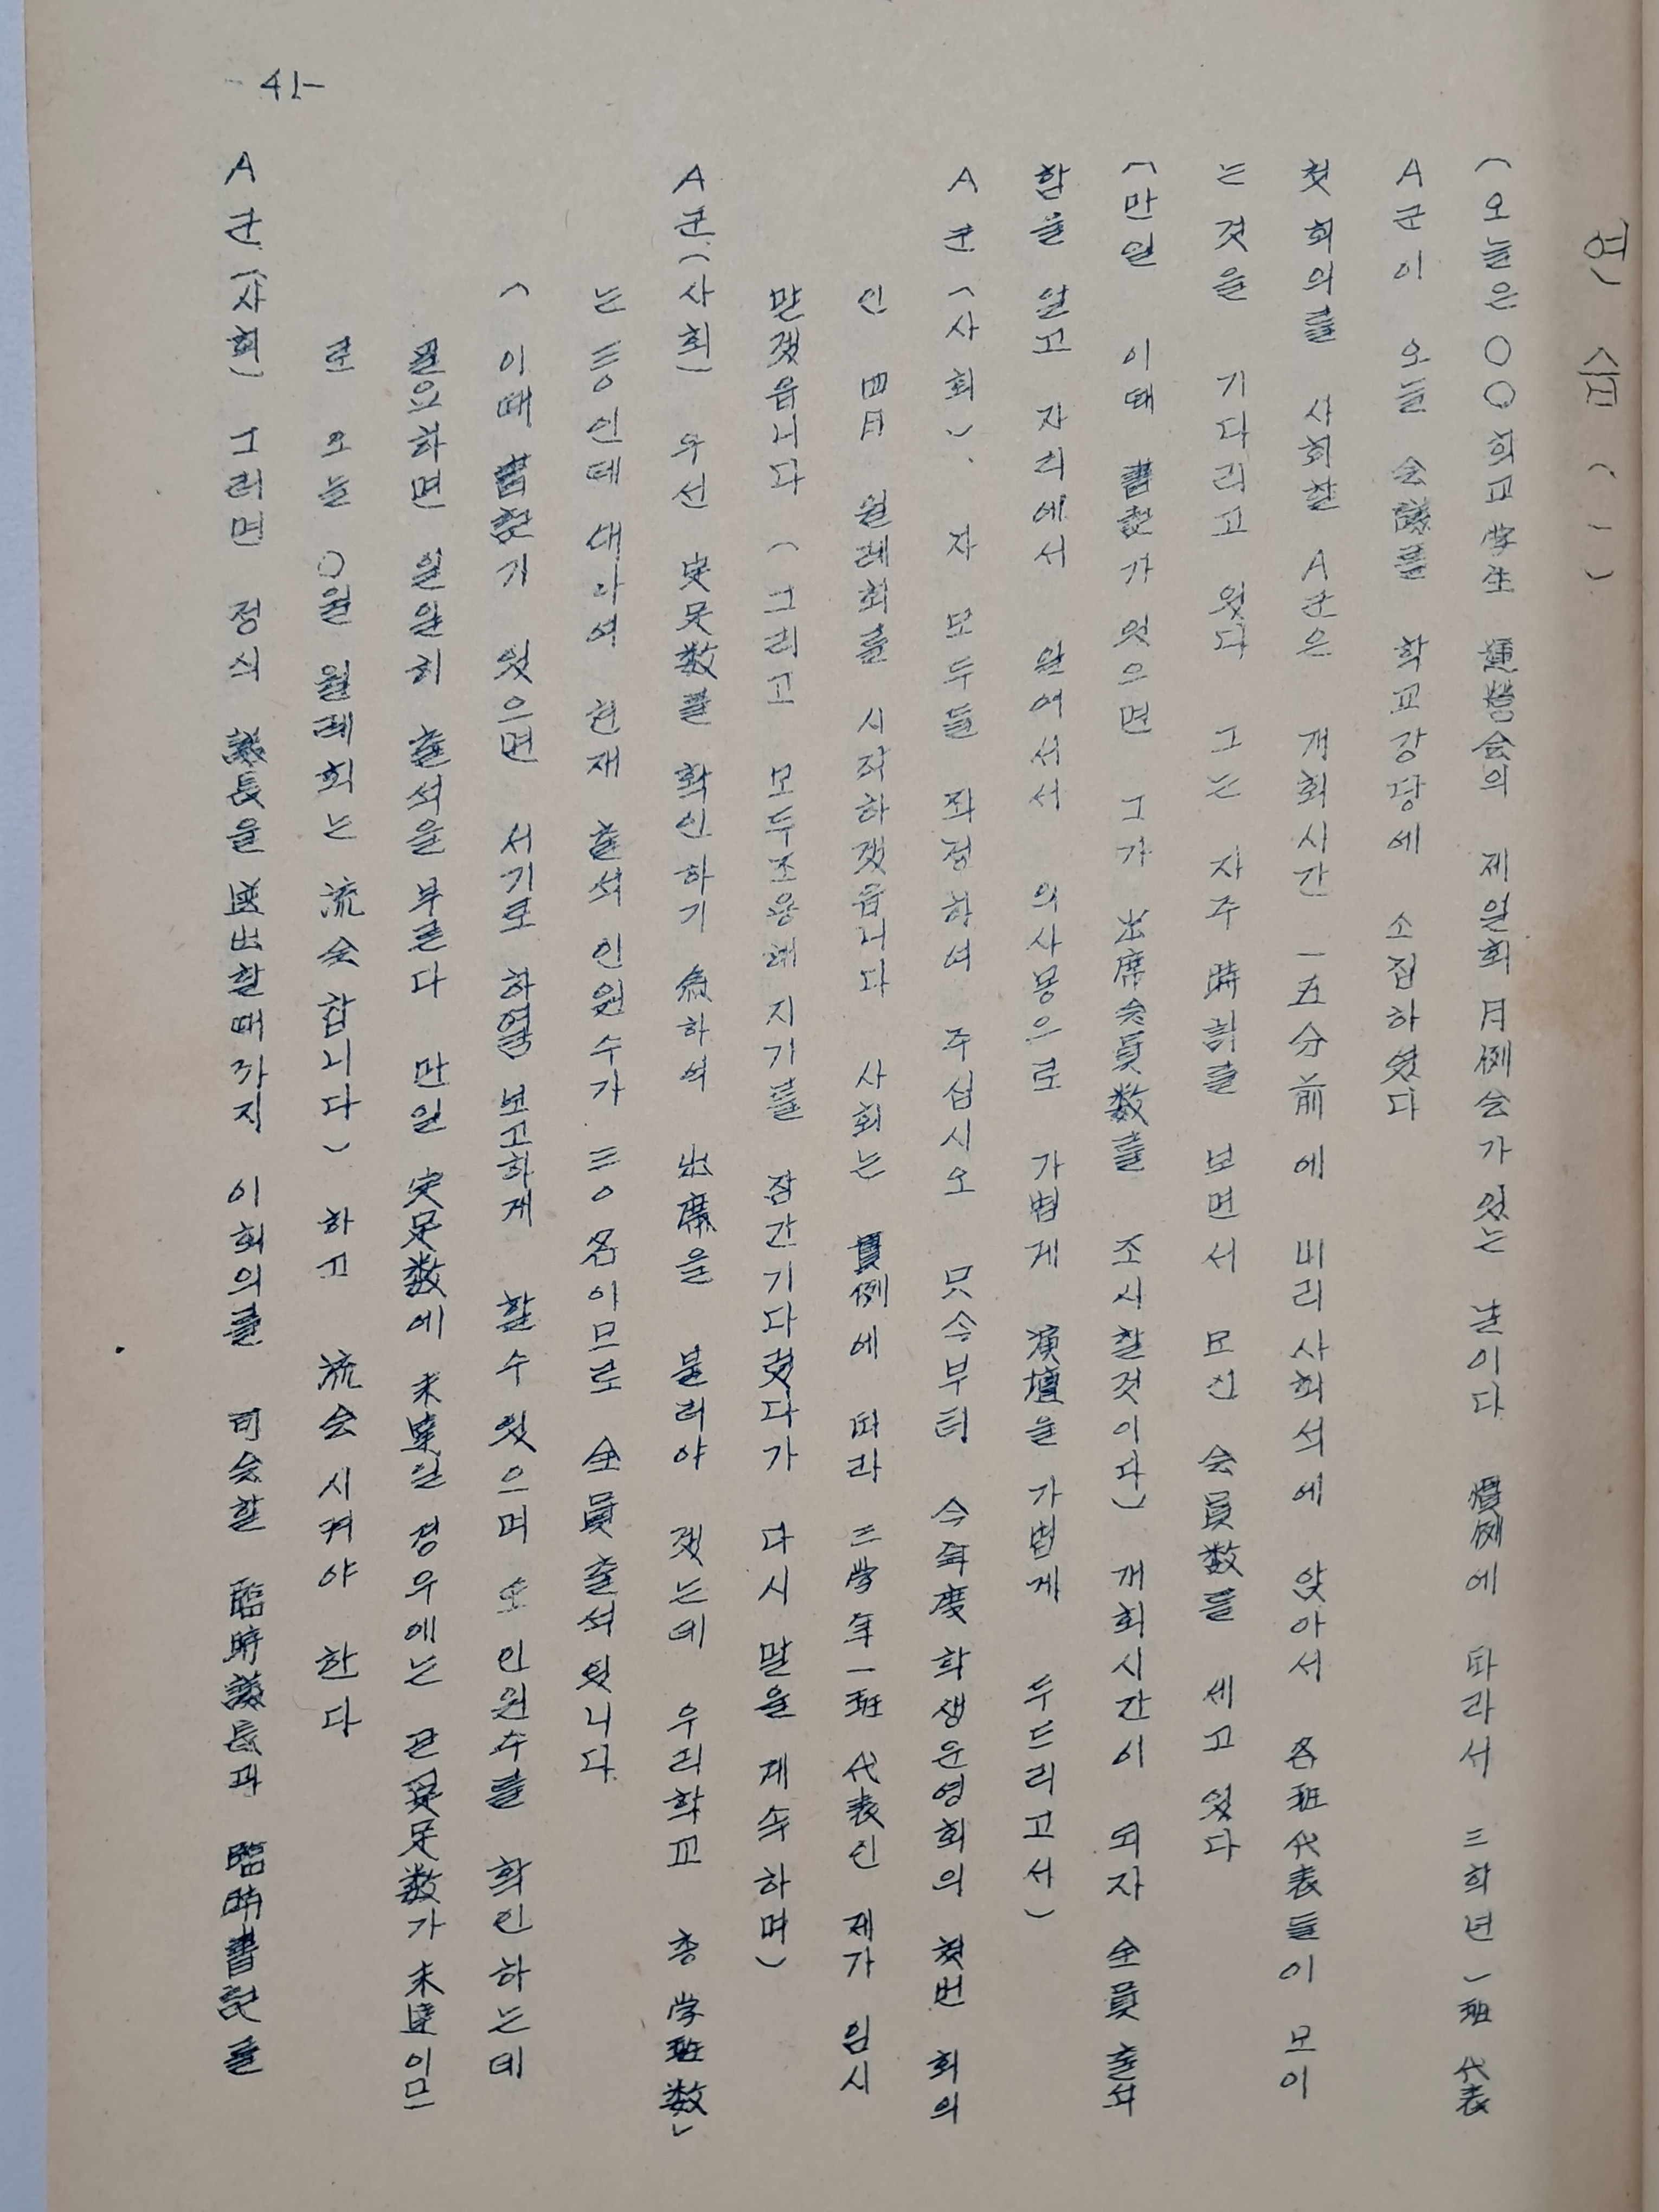 연습 (一)
(오늘은 ○○희교 学生 運營会의 제일회 月例会가 있는 날이다 慣例에 따라서 三학년 一班 代表
A군이 오늘 会議를 학교강당에 소집하였다
첫 회의를 사회할 A군은 개회시간 一五分前에 미리 사회석에 앉아서 各班代表들이 모이
는 것을 기다리고 있다 그는 자주 時計를 보면서 모인 会員数를 세고 있다
(만일 이때 書記가 있으면 그가 出席会員数를 조사할것이다) 개회시간이 되자 全員 출석
함을 알고 자리에서 일어서서 의사봉으로 가볍게 演壇을 가볍게 두드리고서)
A군 (사회) . 자 모두들 좌정하여 주십시오 只今부터 今年度 학생운영회의 첫번 회의
인 四月 월례회를 시작하겠읍니다 사회는 慣例에 따라 三学年一班 代表인 제가 임시
맡겠읍니다 (그리고 모두조용해 지기를 잠간기다렸다가 다시 말을 계속하며)
A군 (사회) 우선 定足数를 확인하기 爲하여 出席을 불러야 겠는데 우리학교 총 学班数
는 三○인데 대하여 현재 출석 인원수가 三○名이므로 全員출석 있니다.
( 이때 書記가 있으면 서기로 하여금 보고하게 할수 있으며 또 인원수를 확인하는데
필요하면 일일히 출석을 부른다 만일 定足数에 未達일 경우에는 定足数가 未達이므
로 오늘 ○월 월례회는 流会합니다) 하고 流会시켜야 한다
A군 (사회) 그러면 정식 議長을 選出할때까지 이회의를 司会할 臨時議長과 臨時書記를
- 41 -